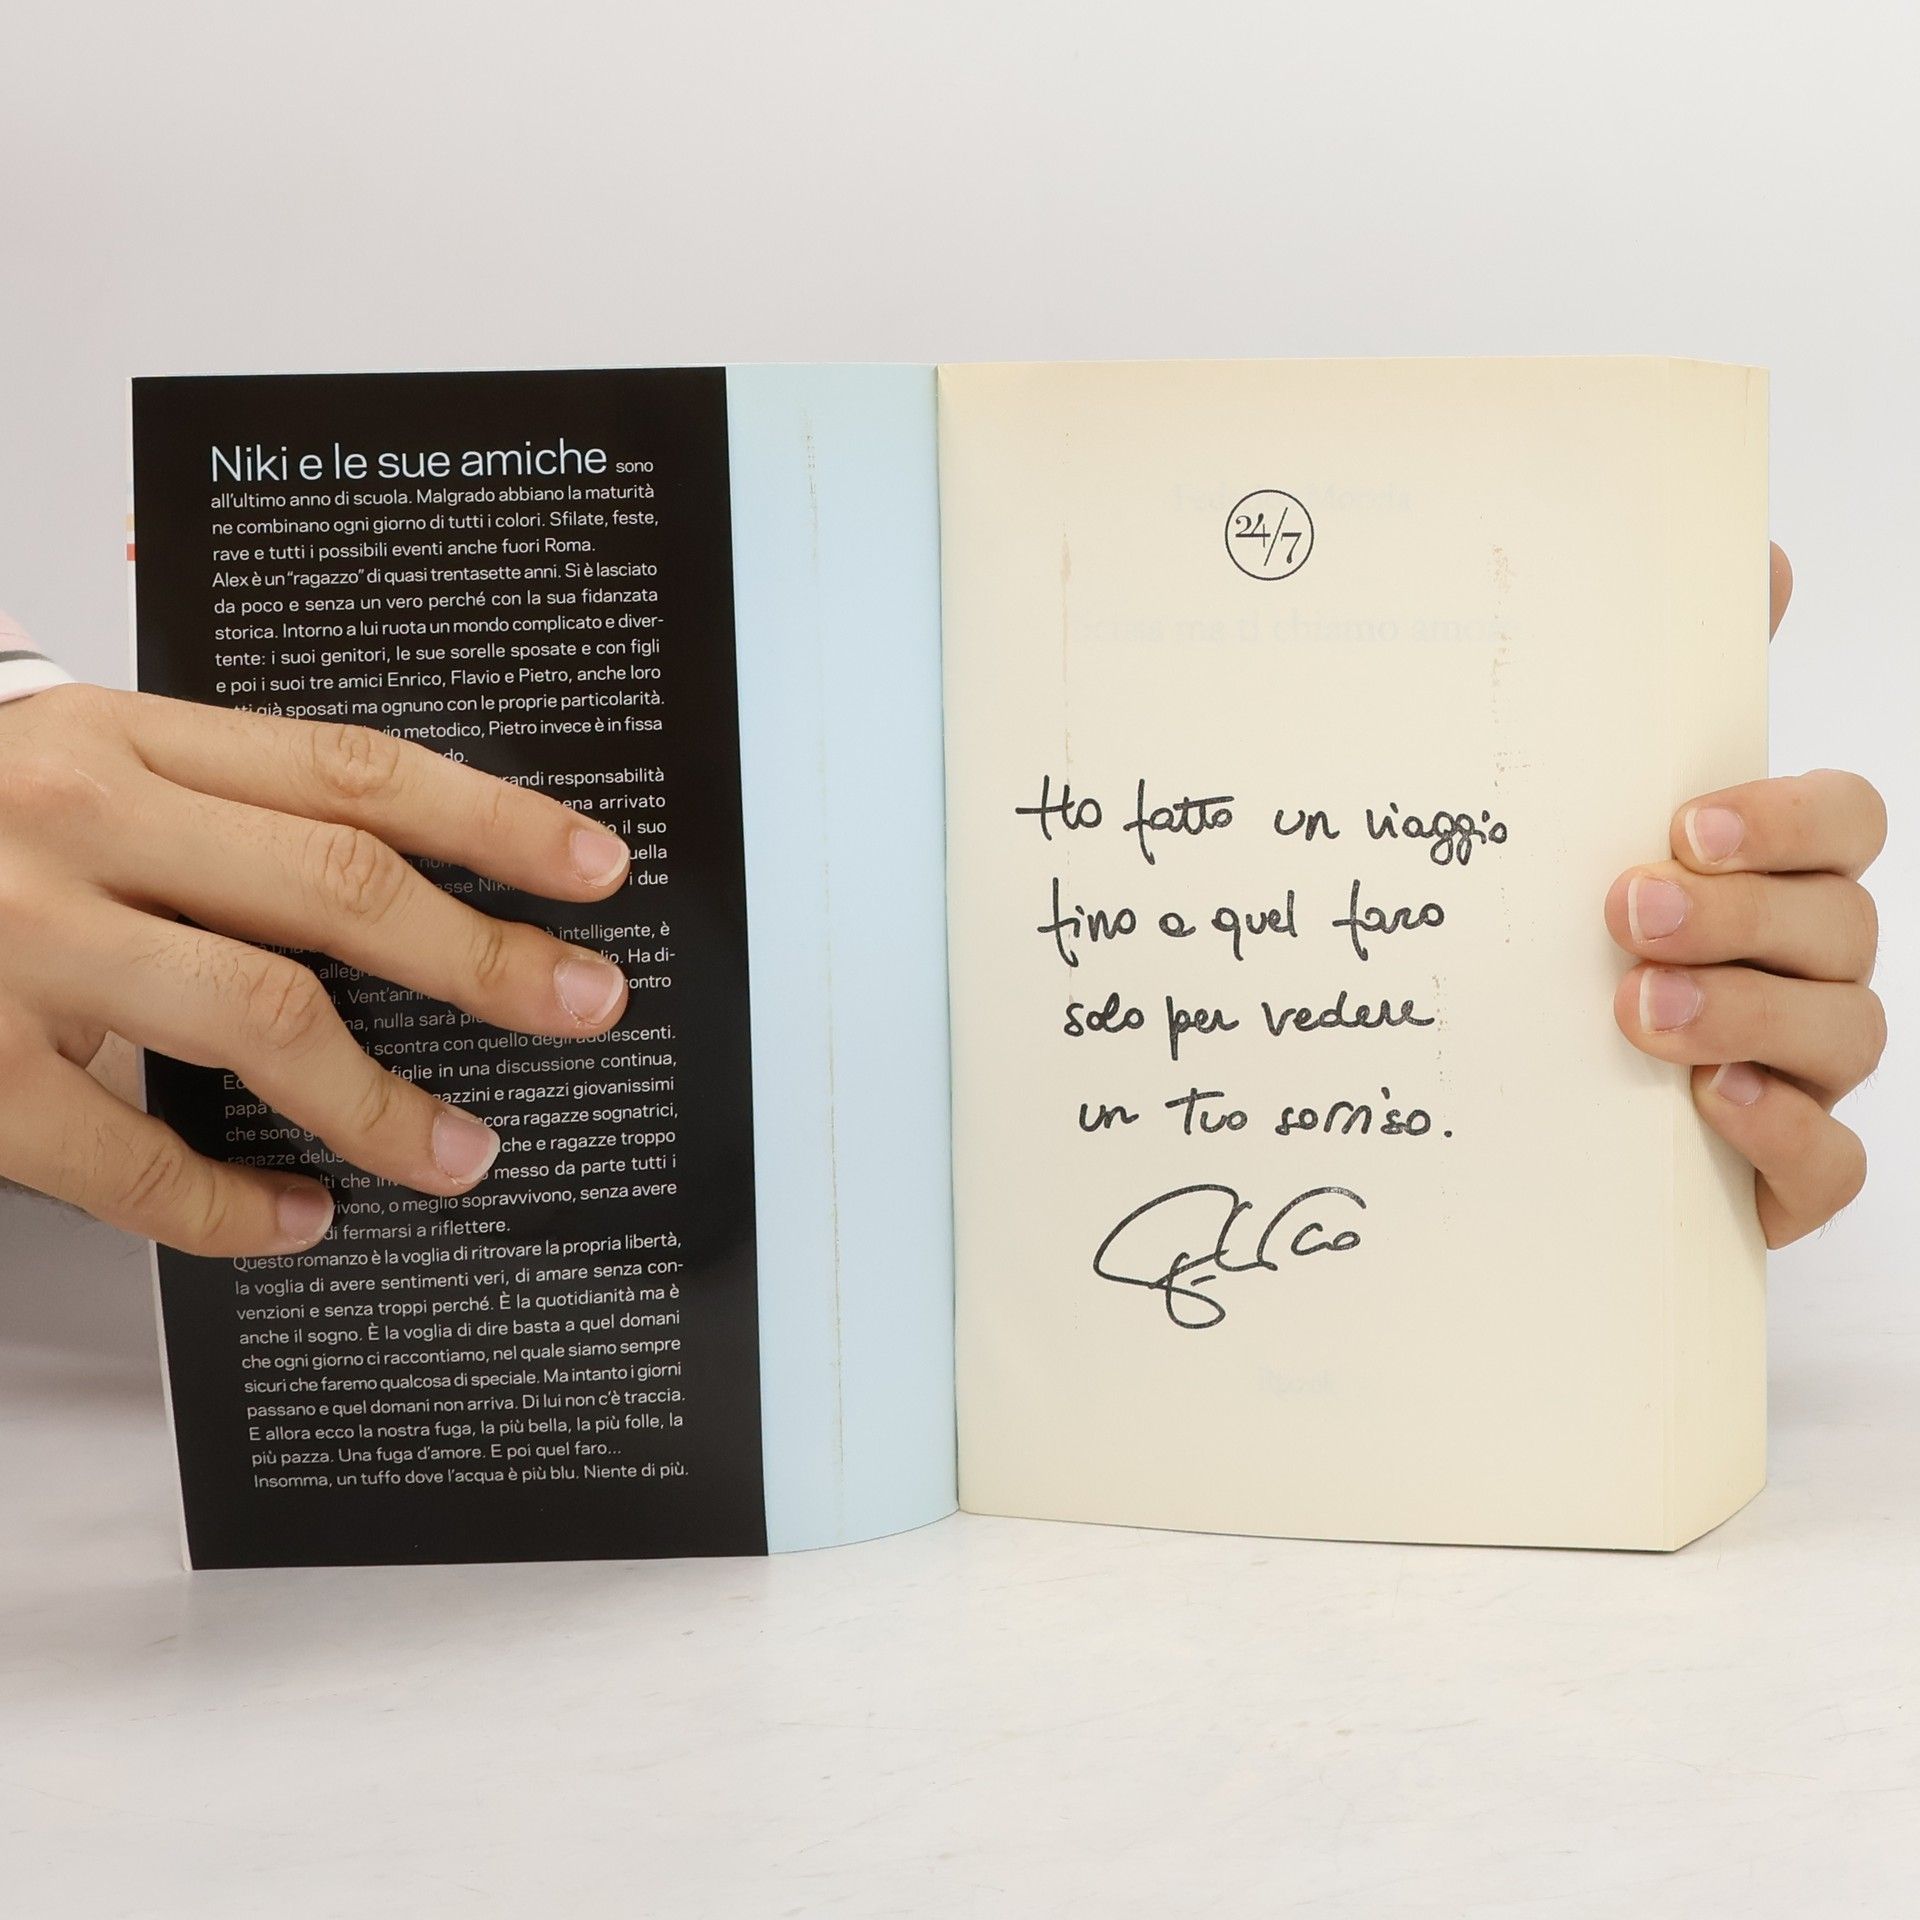 Niki e le sue amiche sono
all'ultimo anno di scuola. Malgrado abbiano la maturità
ne combinano ogni giorno di tutti i colori. Sfilate, feste,
rave e tutti i possibili eventi anche fuori Roma.
Alex è un "ragazzo" di quasi trentasette anni. Si è lasciato
da poco e senza un vero perché con la sua fidanzata
storica. Intorno a lui ruota un mondo complicato e diver-
tente: i suoi genitori, le sue sorelle sposate e con figli
e poi i suoi tre amici Enrico, Flavio e Pietro, anche loro
già sposati ma ognuno con le proprie particolarità.
metodico, Pietro invece è in fissa
responsabilità
arrivato
il suo
i due
intelligente, è
Ha di-
Vent'anni
nulla sarà
si scontra con quello degli adolescenti.
in una discussione continua,
e ragazzi giovanissimi
ragazze sognatrici,
papà
che sono
che e ragazze troppo
ragazze
messo da parte tutti i
che
o meglio sopravvivono, senza avere
di fermarsi a riflettere.
Questo romanzo è la voglia di ritrovare la propria libertà,
la voglia di avere sentimenti veri, di amare senza con-
venzioni e senza troppi perché. È la quotidianità ma è
anche il sogno. È la voglia di dire basta a quel domani
che ogni giorno ci raccontiamo, nel quale siamo sempre
sicuri che faremo qualcosa di speciale. Ma intanto i giorni
passano e quel domani non arriva. Di lui non c'è traccia.
E allora ecco la nostra fuga, la più bella, la più folle, la
più pazza. Una fuga d'amore. E poi quel faro...
Insomma, un tuffo dove l'acqua è più blu. Niente di più.
24/7
Ho fatto un viaggio
fino a quel faro
solo per vedere
un tuo sorriso.